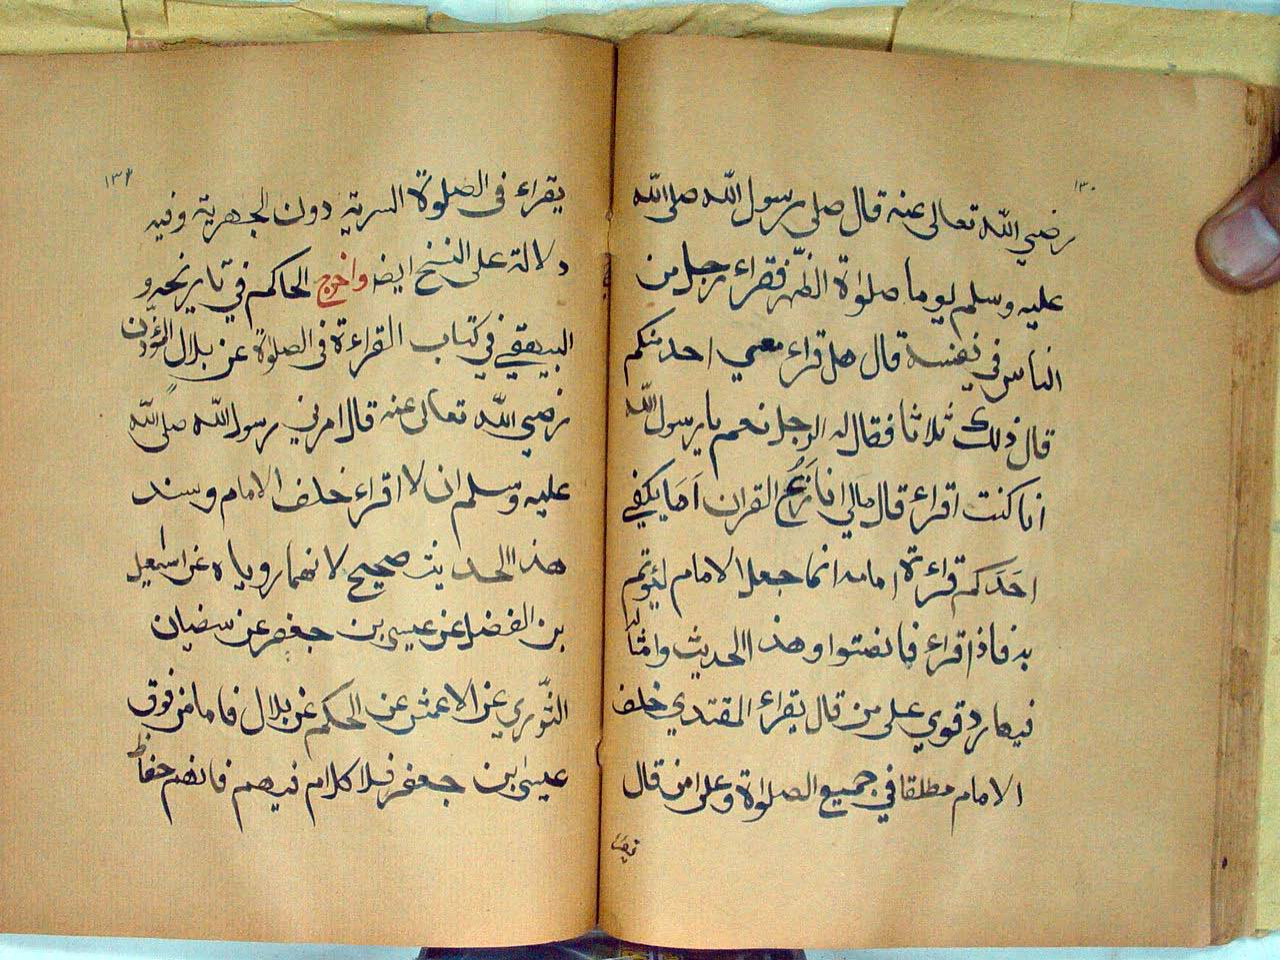 ١٣٠
رضي الله تعالى عنه قال صلى رسول الله صلى الله
عليه وسلم يوما صلواة الظهر فقراء رجل من
الناس في نفسه قال هل قراء معي احد منكم
قال ذلك ثلاثا فقال له الرجل نعم يا رسول الله
انا كنت اقراء قال مالي انازع القران اما يكفي
احدكم قراءة امامه انما جعل الامام ليؤتم
به فاذا قراء فانصتوا وهذا الحديث وامثاله
فيها رد قوي على من قال يقراء المقتدي خلف
الامام مطلقا في جميع الصلواة وعلى من قال
يقراء
١٣١
يقراء فى الصلوة السرية دون الجهرية وفيه
دلالة على النسخ ايضا واخرج الحاكم في تاريخه و
البيهقي في كتاب القراءة فى الصلوة عن بلال المؤذن
رضي الله تعالى عنه قال امرني رسول الله صلى الله
عليه وسلم ان لا اقراء خلف الامام وسند
هذا الحديث صحيح لانهما روياه عن اسمعيل
بن الفضل عن عيسى بن جعفر عن سفيان
الثوري عن الاعمش عن الحكم عن بلال فاما من فوق
عيسى بن جعفر فلا كلام فيهم فانهم حفاظ